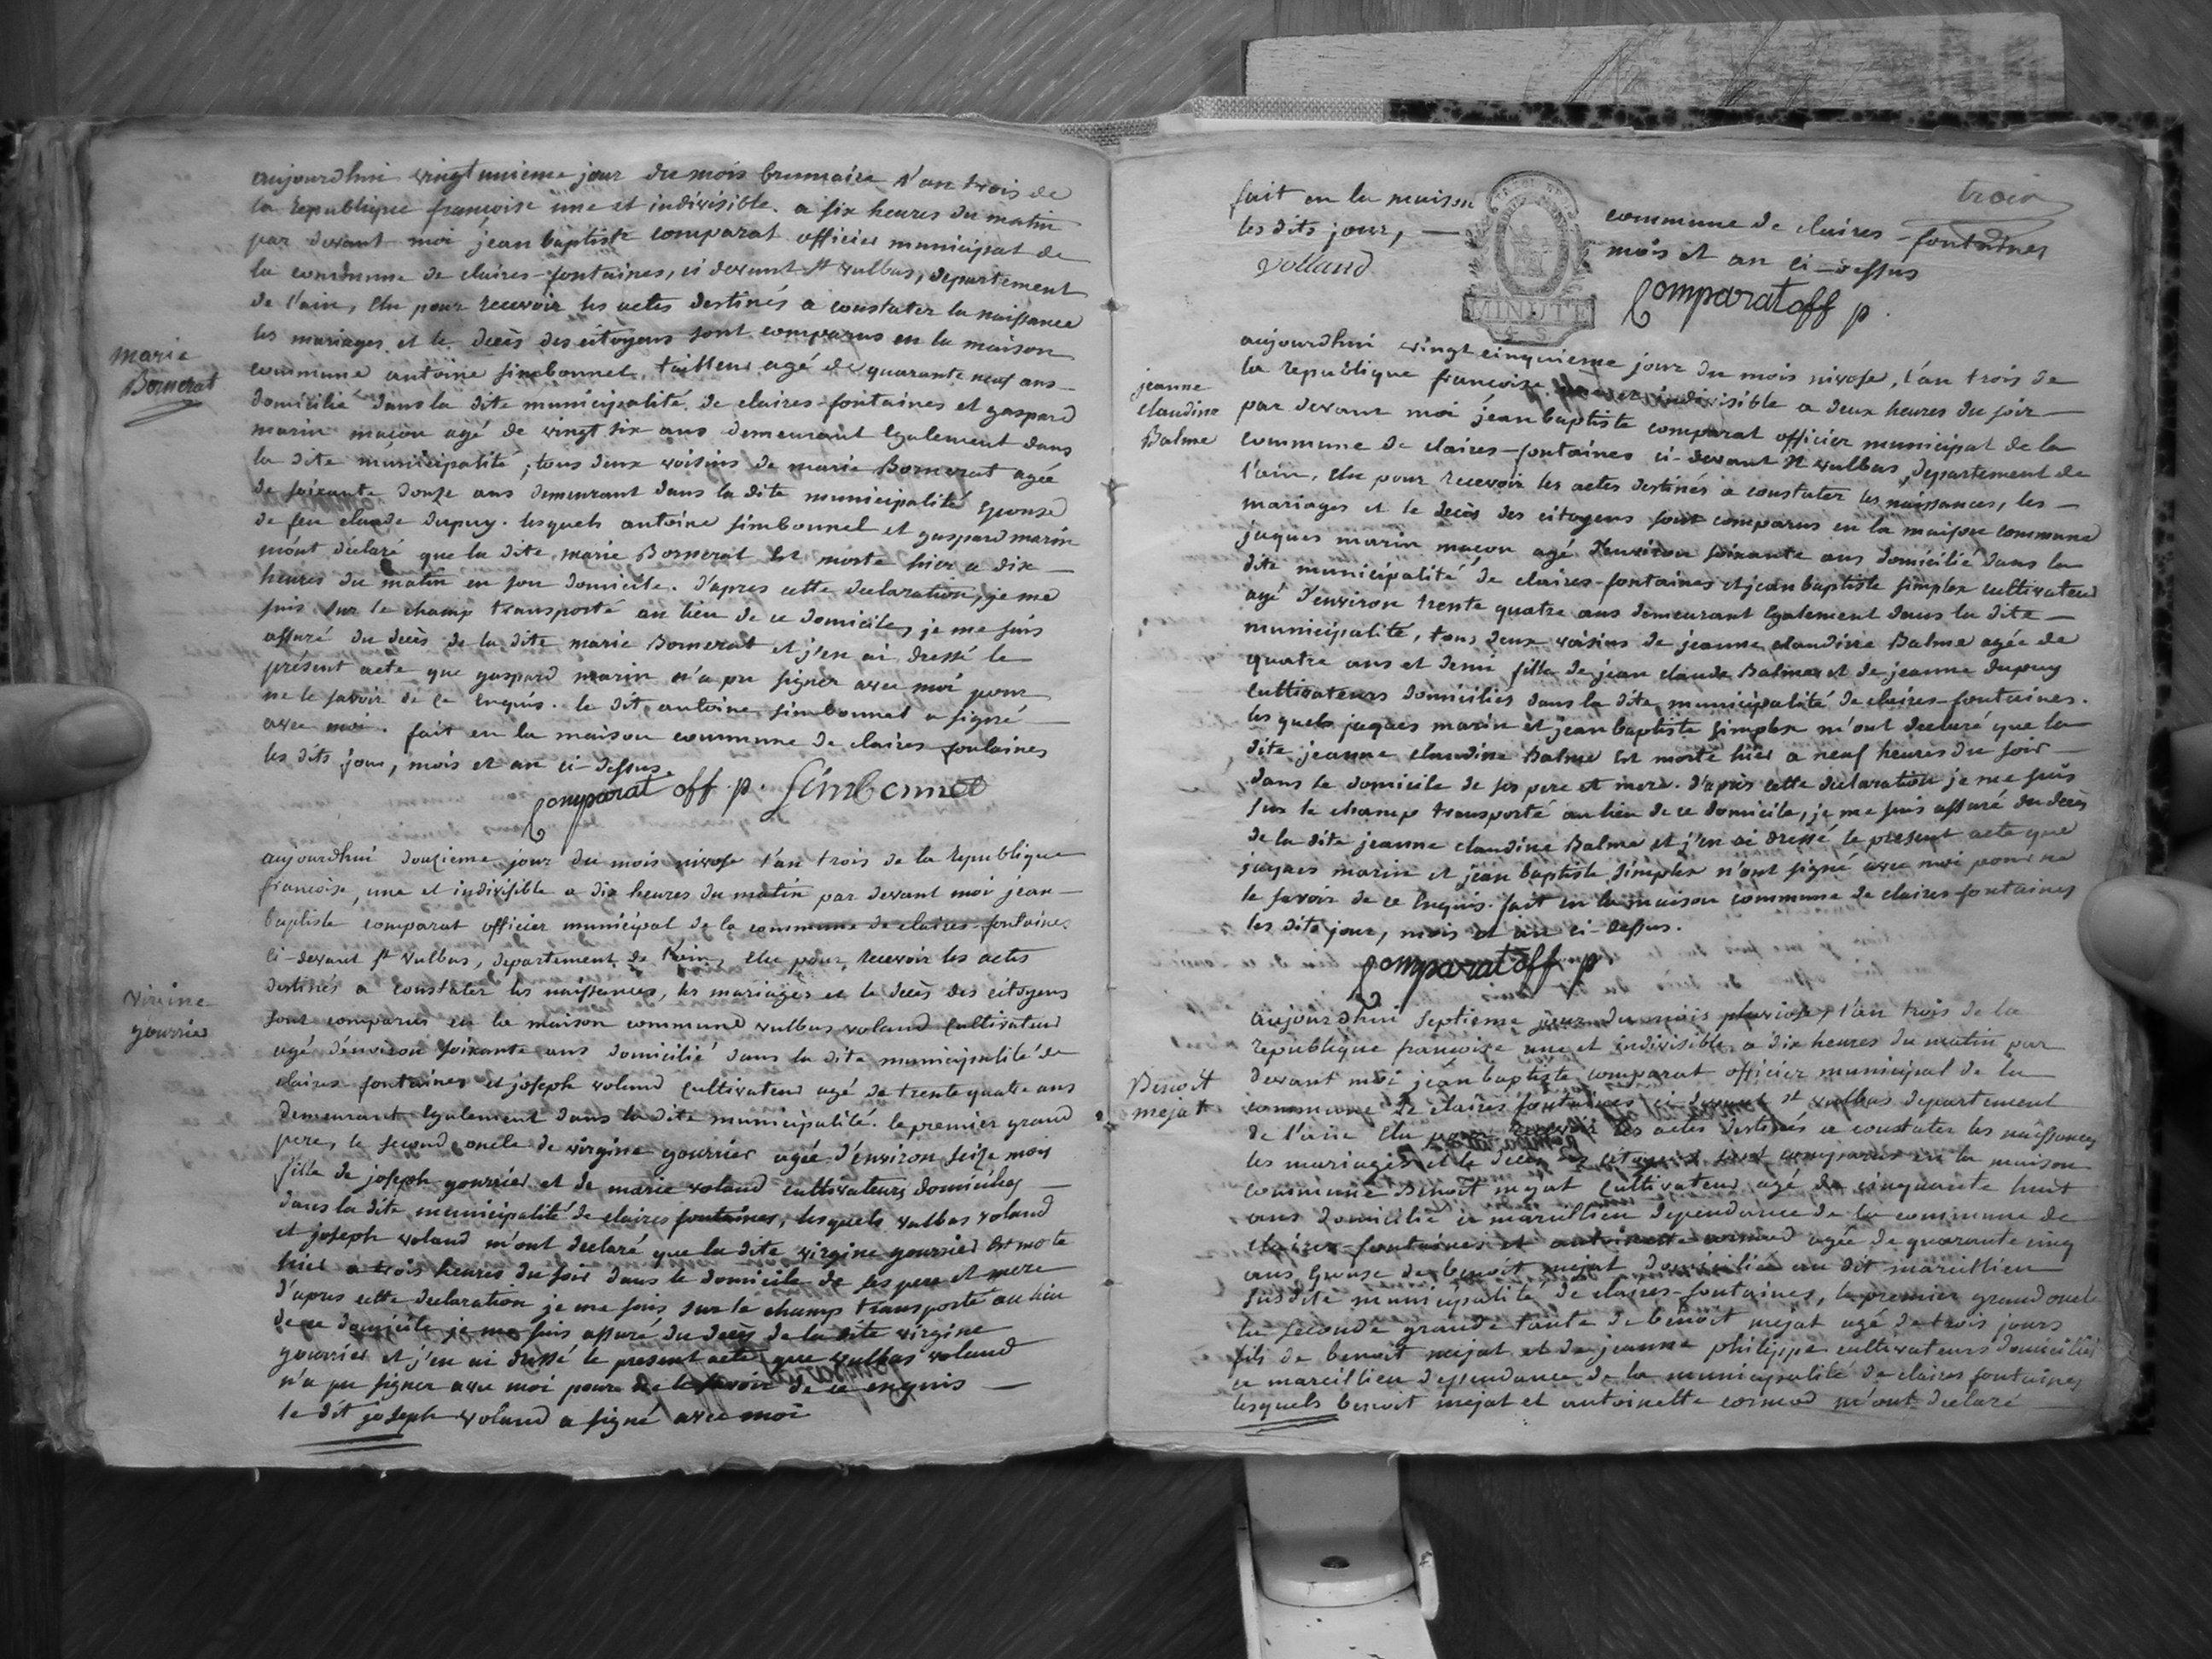 aujourdhui vingt unieme jour du mois brumaire l'an trois de
la republique francoise une et indivisible. a six heures du matin
par devant moi jean baptiste comparat officier municipal de
la commune de claires-fontaines, ci devant st vulbas, departement
de l'ain, elu pour recevoir les actes destinés a constater la naissance
les mariages et le decès des citoyens sont comparus en la maison
commune antoine simbonnel tailleur agé de quarante neuf ans
domicilié dans la dite municipalité de claires-fontaines et gaspard
marin maçon agé de vingt six ans demeurant egalement dans
la dite municipalité; tous deux voisins de marie Bornerat agée
de soixante douze ans demeurant dans la dite municipalité epouse
de feu claude dupuy. lesquels antoine simbonnel et gaspard marin
m'ont déclaré que la dite marie Bornerat est morte hier a dix
heures du matin en son domicile. d'apres cette declaration, je me
suis sur le champ transporté au lieu de ce domicile, je me suis
assuré du decès de la dite marie Bornerat et j'en ai dressé le
présent acte que gaspard marin n'a pu signer avec moi pour
ne le savoir de ce enquis. le dit antoine simbonnel a signé
avec moi. fait en la maison commune de claires fontaines
les dits jour, mois et an ci-dessus.
comparat off. p. Simbonnet
marie
Bornerat
aujourdhui douzieme jour du mois nivose l'an trois de la republique
francoise, une et indivisible a dix heures du matin par devant moi jean
baptiste comparat officier municipal de la commune de claires-fontaines
ci-devant st vulbas, departement de l'ain, elu pour recevoir les actes
destinés a constater les naissances, les mariages et le decès des citoyens
sont comparus en la maison commune vulbas voland cultivateur
agé d'environ soixante ans domicilié dans la dite municipalité de
claires fontaines et joseph voland cultivateur agé de trente quatre ans
demeurant egalement dans la dite municipalité. le premier grand
pere, le second oncle de virgine gourrier agée d'environ seize mois
fille de joseph gourrier et de marie voland cultivateurs domiciliés
dans la dite municipalité de claires fontaines, lesquels vulbas voland
et joseph voland m'ont declaré que la dite virgine gourrier est morte
hier a trois heures du soir dans le domicile de ses pere et mere
d'apres cette declaration je me suis sur le champ transporté au lieu
de ce domicile je me suis assuré du decès de la dite virgine
gourrier et j'en ai dressé le present acte que vulbas voland
n'a pu signer avec moi pour ne le savoir de ce enquis
le dit joseph voland a signé avec moi
virine
gourrier
trois
fait en la maison commune de claires-fontaines
les dits jour, mois et an ci-dessus
volland comparat off p.
MINUTE
4 S
aujourdhui vingt cinquieme jour du mois nivose, l'an trois de
la republique francoise une et indivisible a deux heures du soir
par devant moi jean baptiste comparat officier municipal de la
commune de claires-fontaines ci-devant st vulbas, departement de
l'ain, elu pour recevoir les actes destinés a constater les naissances, les
mariages et le decès des citoyens sont comparus en la maison commune
jaques marin maçon agé d'environ soixante ans domicilié dans la
dite municipalité de claires-fontaines et jean baptiste simplex cultivateur
agé d'environ trente quatre ans demeurant egalement dans la dite
municipalité, tous deux voisins de jeanne claudine Balme agée de
quatre ans et demi fille de jean claude Balme et de jeanne dupuy
cultivateurs domiciliés dans la dite municipalité de claires-fontaines.
les quels jaques marin et jean baptiste simplex m'ont declaré que la
dite jeanne claudine Balme est morte hier a neuf heures du soir
dans le domicile de ses pere et mere. d'après cette declaration je me suis
sur le champ transporté au lieu de ce domicile, je me suis assuré du decès
de la dite jeanne claudine Balme et j'en ai dressé le present acte que
jaques marin et jean baptiste simplex n'ont signé avec moi pour ne
le savoir de ce enquis. fait en la maison commune de claires-fontaines
les dits jour, mois et an ci-dessus.
comparat off p
jeanne
claudine
Balme
aujourdhui septieme jour du mois pluviose, l'an trois de la
republique francoise une et indivisible a dix heures du matin par
devant moi jean baptiste comparat officier municipal de la
commune de claires fontaines ci-devant st vulbas departement
de l'ain elu pour recevoir les actes destinés a constater les naissances
les mariages et le decès des citoyens sont comparus en la maison
commune Benoît mejat cultivateur agé de cinquante huit
ans domicilié a marcillieu dependance de la commune de
claires-fontaines et antoinette cormod agée de quarante cinq
ans epouse de benoit mejat domiciliée au dit marcillieu
susdite municipalité de claires-fontaines, le premier grand oncle
la seconde grande tante de benoît mejat agé de trois jours
fils de benoit mejat et de jeanne philippe cultivateurs domiciliés
a marcillieu dependance de la municipalité de claires fontaines
lesquels benoit mejat et antoinette cormod m'ont declaré
Benoît
mejat